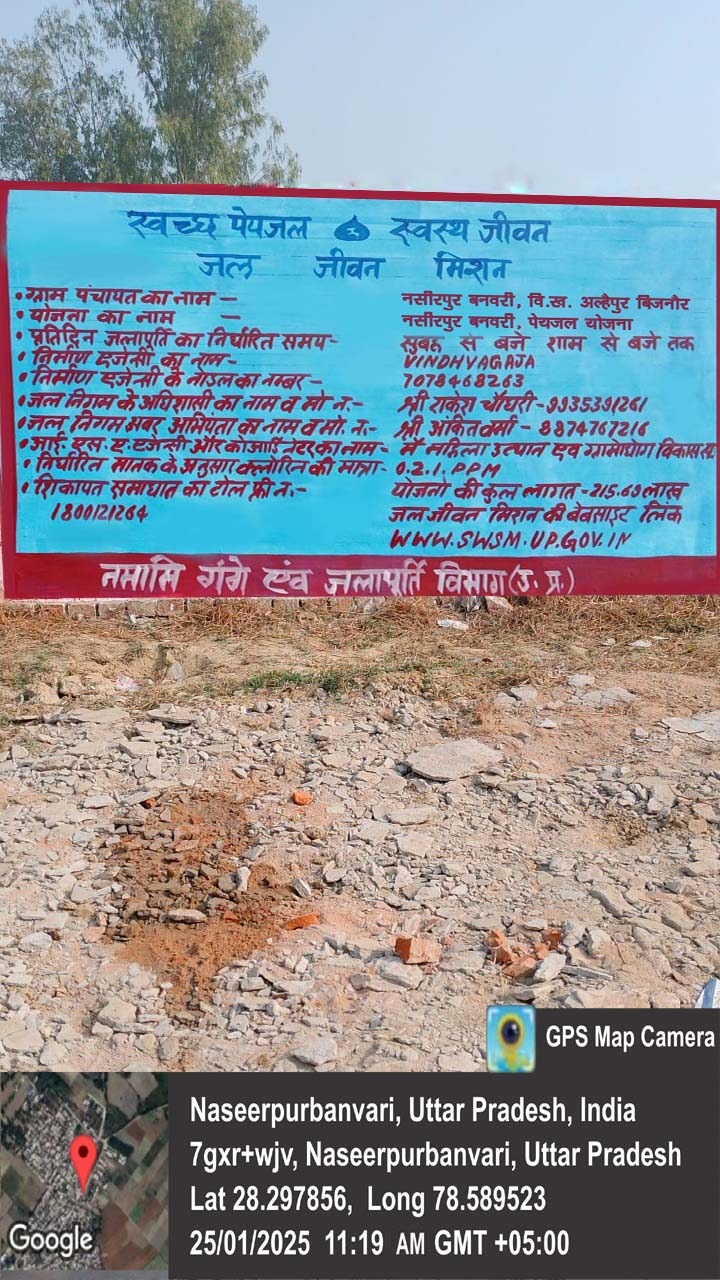 स्वच्छ पेयजल स्वस्थ जीवन
जल जीवन मिशन
• ग्राम पंचायत का नाम – नसीरपुर बनवरी, वि.ख. अल्हैपुर बिजनौर
• योजना का नाम – नसीरपुर बनवरी, पेयजल योजना
• प्रतिदिन जलापूर्ति का निर्धारित समय- सुबह से बजे शाम से बजे तक
• निर्माण एजेन्सी का नाम- VINDHYAGAJA
• निर्माण एजेन्सी के नोडल का नम्बर- 7078468263
• जल निगम के अधिशासी का नाम व मो न.- श्री राकेश चौधरी-9935391261
• जल निगम अभियंता का नाम व मो. न.- श्री अंकित वर्मा - 8874767216
• आई. एस. ए. एजेन्सी और कोआर्डिनेटर का नाम- मै महिला उत्थान एवं ग्रामोद्योग विकास स.
• निर्धारित मानक के अनुसार क्लोरिन की मात्रा- 0.2.1.PPM
• शिकायत समाधान का टोल फ्री न.- योजना की कुल लागत -215.69 लाख
1800121264 जल जीवन मिशन की बेबसाइट लिंक
WWW.SWSM.UP.GOV.IN
नमामि गंगे एंव जलापूर्ति विभाग (उ. प्र.)
GPS Map Camera
Naseerpurbanvari, Uttar Pradesh, India
7gxr+wjv, Naseerpurbanvari, Uttar Pradesh
Lat 28.297856, Long 78.589523
25/01/2025 11:19 AM GMT +05:00
Google